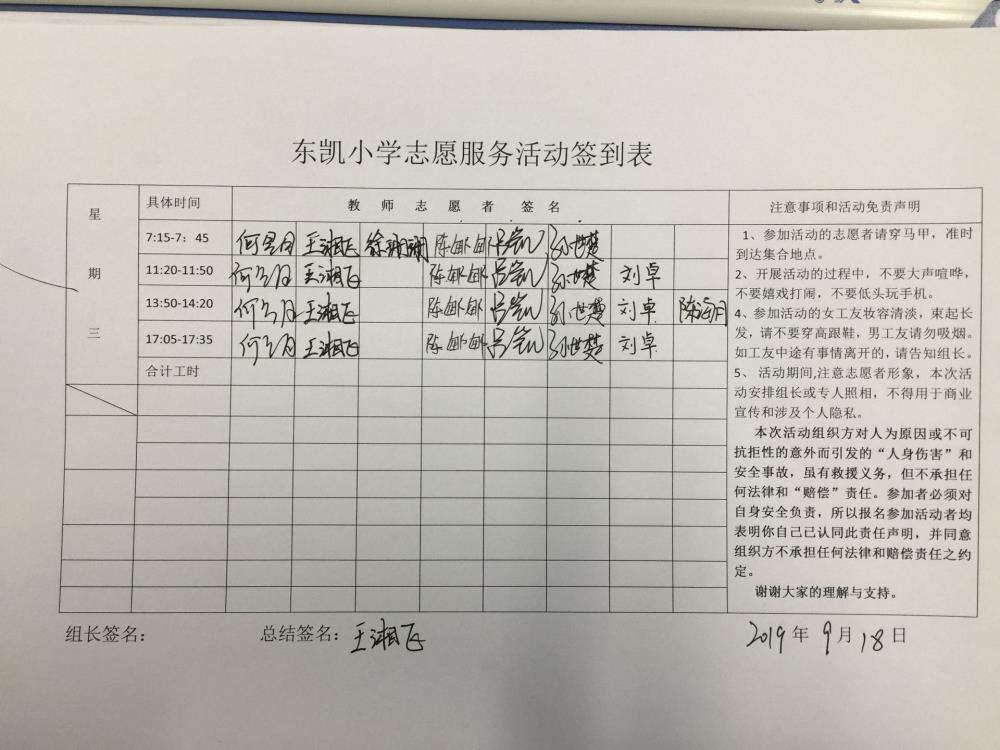 东凯小学志愿服务活动签到表
星期三
具体时间 教师志愿者签名 注意事项和活动免责声明
7:15-7：45 王湘飞 徐珊珊 陈娜娜 吕凯 孙世楚
11:20-11:50 王湘飞 陈娜娜 吕凯 孙世楚 刘卓
13:50-14:20 王湘飞 陈娜娜 吕凯 孙世楚 刘卓
17:05-17:35 王湘飞 陈娜娜 吕凯 孙世楚 刘卓
合计工时
1、参加活动的志愿者请穿马甲，准时
到达集合地点。
2、开展活动的过程中，不要大声喧哗，
不要嬉戏打闹，不要低头玩手机。
4、参加活动的女工友妆容清淡，束起长
发，请不要穿高跟鞋，男工友请勿吸烟。
如工友中途有事情离开的，请告知组长。
5、活动期间,注意志愿者形象，本次活
动安排组长或专人照相，不得用于商业
宣传和涉及个人隐私。
本次活动组织方对人为原因或不可
抗拒性的意外而引发的“人身伤害”和
安全事故，虽有救援义务，但不承担任
何法律和“赔偿”责任。参加者必须对
自身安全负责，所以报名参加活动者均
表明你自己已认同此责任声明，并同意
组织方不承担任何法律和赔偿责任之约
定。
谢谢大家的理解与支持。
组长签名： 总结签名：王湘飞 2019年9月18日